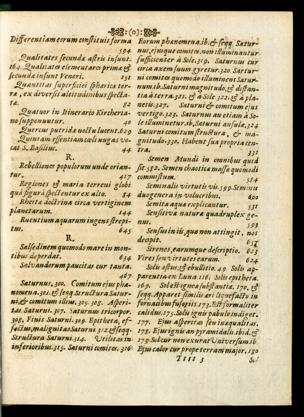 :(o):
Differentiae eorum constituit forma
594
Qualitates secunda astris insunt.
164. Qualitates elementares primae &
secundae insunt Veneri. 151
Quantitas superficiei sphaerica terrae,
ex adversis altitudinibus spectata.
52
Quatuor in Itinerario Kircheriano
supponuntur.
Quercus putrida noctu lucent. 629
Quintam essentiam coeli negavocat
S. Basilius. 44
R.
Rebelliones populorum unde oriantur.
417
Regiones & maria terreni globi
qua figura spectentur ex alto. 54
Rheita doctrina circa vertiginem
planetarum. 144
Ruentium aquarum ingens strepitus.
645
R.
Salsedinem quomodo mare in montibus
deperdat. 654
Salvandorum paucitas cur tanta.
467
Saturnus, 302. Comitum ejus phaenomena.
302. & seqq. structura Saturni,
& comitum illius. 305. 303. Asperitas
Saturni. 307. Saturnus tricorpor.
308. Finis Saturni. 309. Epitheta, effectus,
malignitas Saturni 312. & seqq.
Structura Saturni 314. Utilitas in
inferioribus. 315. Saturni comites. 316
Eorum phaenomena. ib. & seqq. Saturnus,
ejusque comites, non illuminantur
sufficienter à Sole. 319. Saturnus cur
circa axem suum gyretur. 320. Saturni
comites quomodo illuminent Saturnum.
ib. Saturni magnitudo, & distantia
à terra. 321. & à Sole. 322. & à planetis.
327. Saturni & comitum ejus
vertigo. 323. Saturnus an etiam à Sole
illuminetur. ib. Saturni ansulae, 324
Saturni comitum structura, & magnitudo.
330. Habent sua propria centra.
331
Semen Mundi in omnibus quid
sit. 582. Semen chaotica massa quomodo
commistum. 594
Seminalis virtutis vis. 599. Seminis
duo genera in volucribus. 600
Semita aquae explicantur. 531
Sensitiva natura quadruplex genus.
593
Sensus in iis, quae non attingit, non
decipit. 657
Sirenes, earumque descriptio. 653
Vires sen virtutes earum. 654
Solis aestus, & ebullitio. 49. Solis apparentia
ex Luna. 116. Solis epitheta.
169. Sol est ignea substantia. 170, &
seqq. Apparet similis aeri liquefacto in
fornacibus fusoriis. 173. Est formaliter
calidus. 175. Solis ignis pabulo indiget.
177. Ejus asperitas seu inaequalitas.
178. Ejus ignis an pyramidalis. ibid. &
179. Sol cur non exurat Universum ib
Ejus calor cur prope terram major. 150
Tttt 3